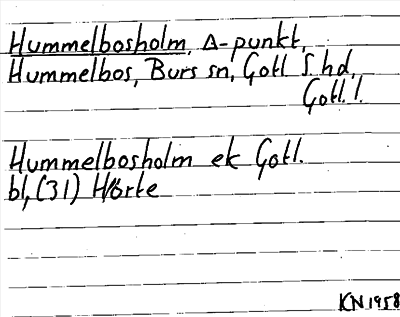 Hummelbosholm, Δ-punkt,
Hummelbos, Burs sn, Gotl S. hd,
Gotl. l.
Hummelbosholm ek Gotl.
bl, (31) Hörte
KN 1958